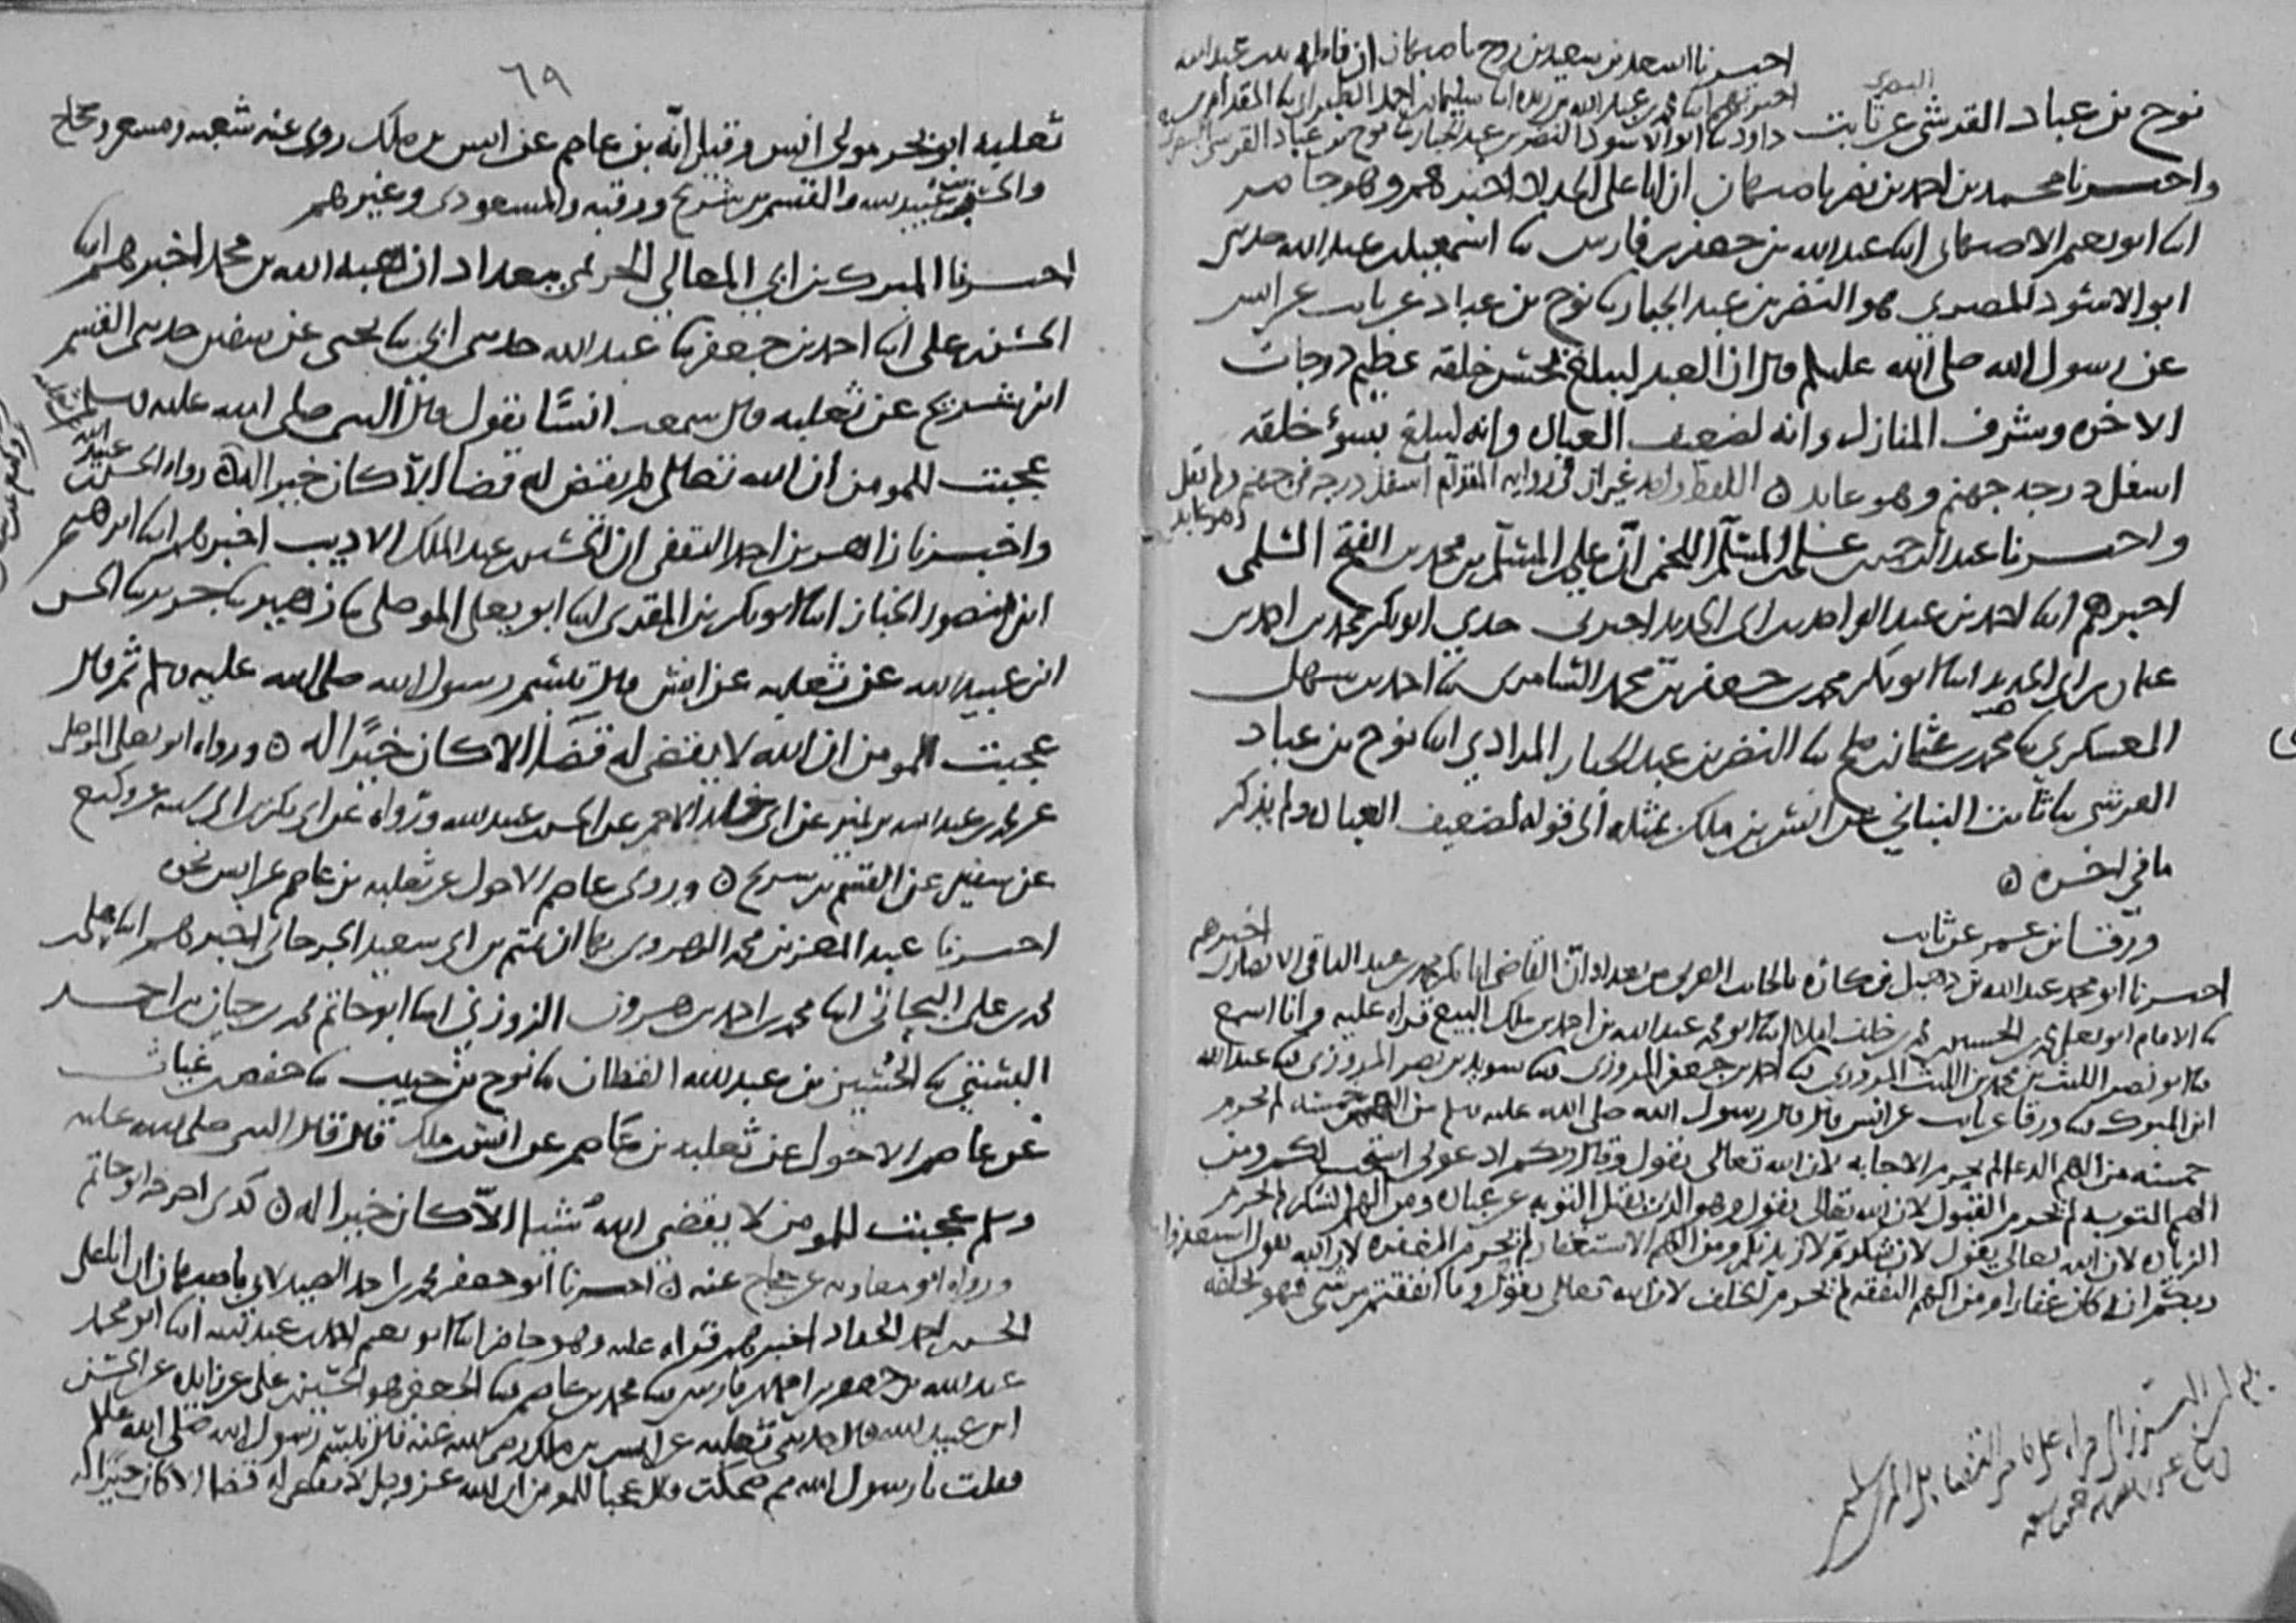 احبرنا اسعد بن سعيد بن روح باصبهان ان فاطمه بنت عبد الله
اخبرتهم ابنا محمد بن عبد الله بن ريذه ابنا سليمان بن احمد الطبراني نا المقدام بن
نوح بن عباد القرشي عن ثابت
البصري
داود نا ابو الاسود النضر بن عبد الجبار نا نوح بن عباد القرشي
واخبرنا محمد بن احمد بن نصر باصبهان ان ابا علي الحداد اخبرهم وهو حاضر
ابنا ابو نعيم الاصبهاني ابنا عبد الله بن جعفر بن فارس نا اسمعيل بن عبد الله حدثني
ابو الاسود المصري هو النضر بن عبد الجبار نا نوح بن عباد عن ثابت عن انس
عن رسول الله صلى الله عليه وسلم قال ان العبد ليبلغ بحسن خلقه عظيم درجات
الاخره وشرف المنازل وانه لضعيف العباده وانه ليبلغ بسوء خلقه
اسفل درجه جهنم وهو عابد ه اللفظ واحد غير ان في روايه المقدام اسفل درجه في جهنم ولم يقل
وهو عابد
واخبرنا عبد الرحمن بن علي بن المسلم اللخمي ان علي بن المسلم بن محمد بن الفتح السلمي
اخبرهم ابنا احمد بن عبد الواحد بن ابي الحديد اخبرني جدي ابو بكر محمد بن احمد بن
عثمان بن ابي الحديد ابنا ابو بكر محمد بن جعفر بن محمد السامري نا احمد بن سهل
العسكري نا محمد بن عثمان بن صلح نا النضر بن عبد الجبار المرادي ابنا نوح بن عباد
القرشي نا ثابت البناني عن انس بن ملك بمثله الى قوله لضعيف العباده ولم يذكر
ما في اخره ه
ورقاء بن عمر عن ثابت
اخبرنا ابو محمد عبد الله بن دهبل بن كاره بالجانب الغربي من بغداد ان القاضي ابا بكر محمد بن عبد الباقي الانصاري اخبرهم
نا الامام ابو يعلى محمد بن الحسين بن محمد بن خلف املاء ابنا ابو محمد عبد الله بن احمد بن ملك البيع قراه عليه وانا اسمع
نا ابو نصر الليث بن محمد بن الليث المروزي نا احمد بن جعفر المروزي نا سويد بن نصر المروزي نا عبد الله
ابن المبرك نا ورقا عن ثابت عن انس قال قال رسول الله صلى الله عليه وسلم من الهم خمسه لم يحرم
خمسه من الهم الدعا لم يحرم الاجابه لان الله تعالى يقول وقال ربكم ادعوني استجب لكم ومن
الهم التوبه لم يحرم القبول لان الله تعالى يقول وهو الذي يقبل التوبه عن عباده ومن الهم الشكر لم يحرم
الزياده لان الله تعالى يقول لان شكرتم لازيدنكم ومن الهم الاستغفار لم يحرم المغفره لان الله يقول استغفروا
ربكم انه كان غفارا ومن الهم النفقه لم يحرم الخلف لان الله تعالى يقول وما انفقتم من شي فهو يخلفه
٦٩
ثعلبه ابو بحر مولى انس وقيل انه بن عاصم عن انس بن ملك روى عنه شعبه ومسعر وحجاج
والحسن بن عبيد الله والقسم بن شريح ورقبه والمسعودي وغيرهم
اخبرنا المبرك بن ابي المعالي الحريمي ببغداد ان هبه الله بن محمد اخبرهم ابنا
الحسن بن علي ابنا احمد بن جعفر نا عبد الله حدثني ابي نا يحيى عن سفين حدثني القسم
ابن شريح عن ثعلبه قال سمعت انسا يقول قال النبي صلى الله عليه وسلم
عجبت للمومن ان الله تعالى لم يقض له قضا الا كان خيرا له ه رواه الحسن بن عبيد الله
واخبرنا زاهر بن احمد الثقفي ان الحسين بن عبد الملك الاديب اخبرهم ابنا ابرهيم
ابن منصور الخباز ابنا ابو بكر بن المقرى ابنا ابو يعلى الموصلي نا زهير نا جرير نا الحسن
ابن عبيد الله عن ثعلبه عن انس قال تبسم رسول الله صلى الله عليه وسلم ثم قال
عجبت للمومن ان الله لا يقضي له قضا الا كان خيرا له ه ورواه ابو يعلى الموصلي
عن محمد بن عبد الله بن نمير عن ابي خالد الاحمر عن الحسن بن عبيد الله ورواه عن ابي بكر بن ابي شيبه عن وكيع
عن سفين عن القسم بن شريح ه وروى عاصم الاحول عن ثعلبه بن عاصم عن انس نحوه
اخبرنا عبد المعز بن محمد الهروي بها ان تميم بن ابي سعيد الجرجاني اخبرهم ابنا علي بن
محمد بن علي البحاثي ابنا محمد بن احمد بن هرون الزوزني ابنا ابو حاتم محمد بن حبان بن احمد
البستي نا الحسين بن عبد الله القطان نا نوح بن حبيب نا حفص بن غياث
عن عاصم الاحول عن ثعلبه بن عاصم عن انس بن ملك قال قال النبي صلى الله عليه
وسلم عجبت للمومن لا يقضي الله شيا الا كان خيرا له ه كذى اخرجه ابو حاتم
ورواه ابو معاويه عن حجاج عنه ه اخبرنا ابو جعفر محمد بن احمد الصيدلاني باصبهان ان ابا علي
الحسن بن احمد الحداد اخبرهم قراه عليه وهو حاضر ابنا ابو نعيم احمد بن عبد الله ابنا ابو محمد
عبد الله بن جعفر بن احمد بن فارس نا محمد بن عاصم نا الجعفي هو الحسين بن علي عن زايده عن الحسن
ابن عبيد الله قال حدثني ثعلبه عن انس بن ملك رضي الله عنه قال تبسم رسول الله صلى الله عليه وسلم
فقلت يا رسول الله مم ضحكت قال عجبا للمومن ان الله عز وجل لا يقضي له قضا الا كان خيرا له